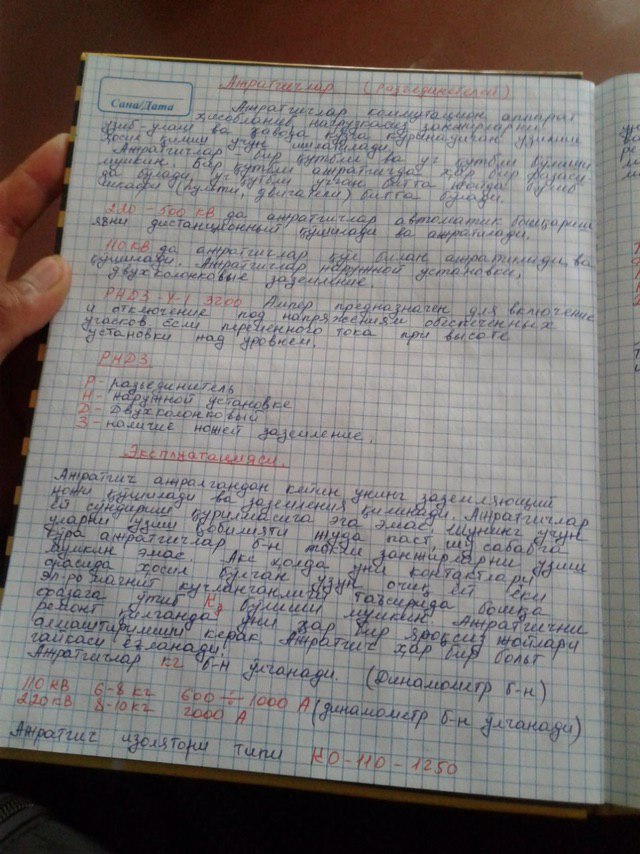 Сана/Дата
Ажратгичлар (разъединовелой)
Ажратгичлар коммутацион аппарат
хисобланиб, нагрузкасиз занжирларни
узиб-улаш ва ҳавода кўзга кўринадиган узилиш
ҳосил қилиш учун ишлатилади.
Ажратгичлар - бир қутбли ва уч қутбли бўлиши
мумкин. Бир қутбли ажратгичда ҳар бир фазаси
да бўлади, уч қутбли учун битта жойда бўлиб
шкафи (пульти, двигатели) битта бўлади.
220 - 500 кВ да ажратгичлар автоматик бошқариш
яъни дистанционный қўшилади ва ажратилади.
110 кВ да ажратгичлар қул билан ажратилади, ва
қўшилади. Ажратгичлар наружной установки,
двухколонковые заземление.
РНДЗ-У-1 3200 Ампер предназначен для включение
и отключение под напряжением обеспеченных
участков если переменного тока при высоте
установки над уровнем.
РНДЗ.
Р- разъединитель
Н- наружной установке
Д- Двухколонковый
З- наличие ножей заземление.
Эксплкатацияси.
Ажратгич ажралгандан кейин унинг заземляющий
ножи қўшилади ва заземления қилинади. Ажратгичлар
ёй сундириш қурилмасига эга эмас шунинг учун
уларни узиш қобилияти жуда паст, шу сабабга
кўра ажратгичлар б-н токли занжирларни узиш
мумкин эмас. Акс ҳолда уни контактлари
орасида ҳосил бўлган узун очиқ ёй ёки
эл-ро магнит кучланганлиги таъсирида бошқа
фазага ўтиб Кз бўлиши мумкин. Ажратгични
ремонт қилганда уни ҳар бир яроқсиз жойлари
алмаштирилиши керак. Ажратгич ҳар бир болт
гайкаси
Ажратгичлар кг б-н ўлчанади. (Динамометр б-н)
110 кВ 6-8 кг 600 ÷ 1000 А
220 кВ 8-10 кг 2000 А (динамометр б-н ўлчанади)
Ажратгич изолятори типи КО-110-1250